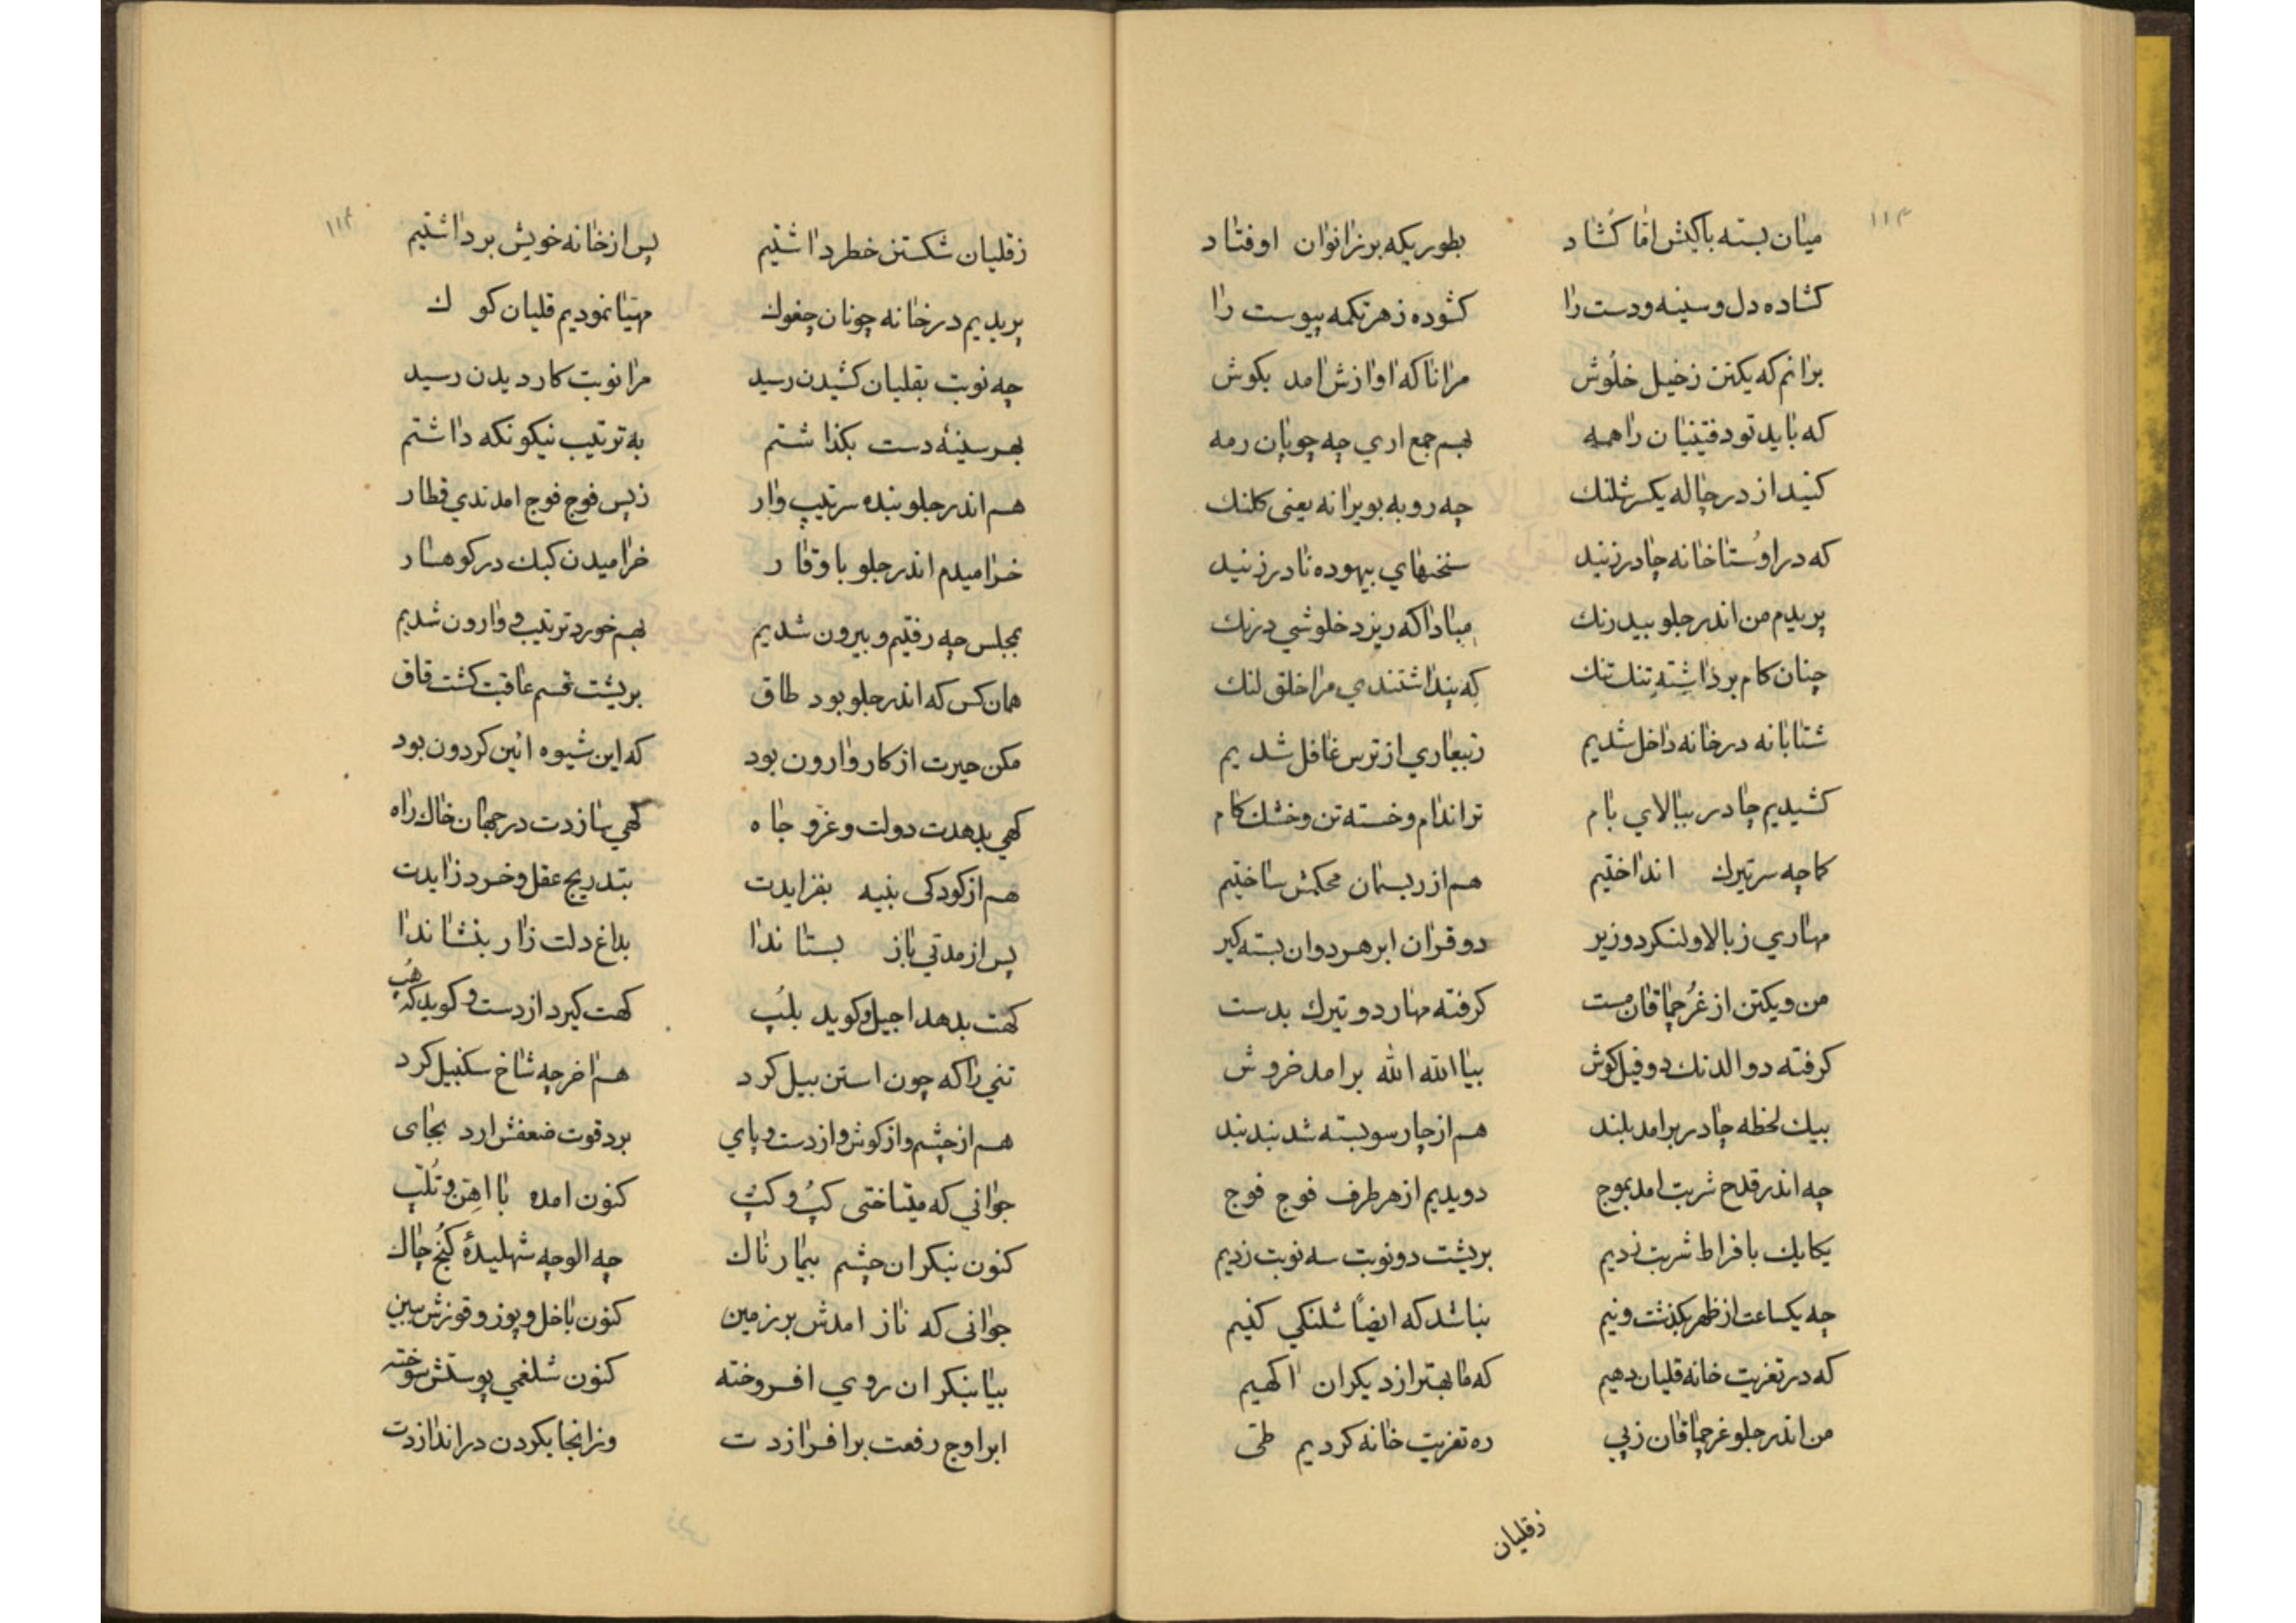 ۱۱۳
میان بسته باکیش اما کشاد بطوریکه بر زانوان اوفتاد
کشاده دل و سینه و دست را کشوده ز هر تکمه پیوست را
برانم که یکتن ز خیل خلوش مرانا که اوازش امد بکوش
که باید تو دقتینیان را همه بهم جمع اری چه چوپان رمه
کنید از در چاله یکسر شلنك چه روبه بویرانه یعنی کلنك
که در اوستا خانه چادر زنید سخنهاي بیهوده نادر زنید
پریدم من اندر جلو بیدرنك مبادا که ریزد خلوشي درنك
چنان کام برداشته تنك تنك که پنداشتندي مرا خلق لنك
شتابانه در خانه داخل شدیم ز بیعاري از ترس غافل شدیم
کشیدیم چادر ببالاي بام تر اندام و خسته تن و خشك کام
کماچه سر تیرك انداختیم هم از ریسمان محکمش ساختیم
مهاري ز بالا ولنکر دو زیر دو قران ابر هر دوان بسته کیر
من و یکتن از غرچماقان مست کرفته مهار دو تیرك بدست
کرفته دو الدنك دو فیل کوش بیا الله الله برامد خروش
بیك لحظه چادر برامد بلند هم از چارسو بسته شد بند بند
چه اندر قدح شربت امد بموج دویدیم از هر طرف فوج فوج
یکایك بافراط شربت زدیم برپشت دو نوبت سه نوبت زدیم
چه یکساعت از ظهر بکذشت و نیم بنا شد که ایضاً شلنکي کنیم
که در تعزیت خانه قلیان دهیم که ما بهتر از دیکران اکهیم
من اندر جلو غرچماقان ز پي ره تعزیت خانه کردیم طی
زقلیان
۱۱۴
زقلیان شکستن خطر داشتیم پس از خانه خویش برداشتیم
پریدیم در خانه چونان چغوك مهیا نمودیم قلیان کوك
چه نوبت بقلیان کشیدن رسید مرا نوبت کار دیدن رسید
بهر سینهٔ دست بکذاشتم به ترتیب نیکو نکه داشتم
هم اندر جلو بنده سرتیپ وار ز پس فوج فوج امدندي قطار
خرامیدم اندر جلو با وقار خرامیدن کبك در کوهسار
بمجلس چه رفتیم و بیرون شدیم بهم خورد ترتیب و وارون شدیم
همان کس که اندر جلو بود طاق برپشت قسم عاقبت کشت قاق
مکن حیرت از کار وارون بود که این شیوه ائین کردون بود
کهي بدهدت دولت و عز و جاه کهي سازدت در جهان خاك راه
هم از کودکی بنیه بفزایدت بتدریج عقل و خرد زایدت
پس از مدتي باز بستاندا بداغ دلت زار بنشاندا
کهت بدهد اجیل و کوید بلپ کهت کیرد از دست و کوید که هپ
تني را که چون استن بیل کرد هم اخر چه شاخ سکنبیل کرد
هم از چشم و از کوش و از دست و پاي برد قوت ضعفش ارد بجای
جواني که میتاختی کپ و کپ کنون امده با اهن و تلپ
کنون بنکر ان چشم بیمارناك چه الوچه شهلیدهٔ کنج چاك
جوانی که ناز امدش بر زمین کنون باخل و پوز و قوزش ببین
بیا بنکر ان روي افروخته کنون شلغمي پوستش سوخته
ابر اوج رفعت برافرازدت وز انجا بکردن در اندازدت